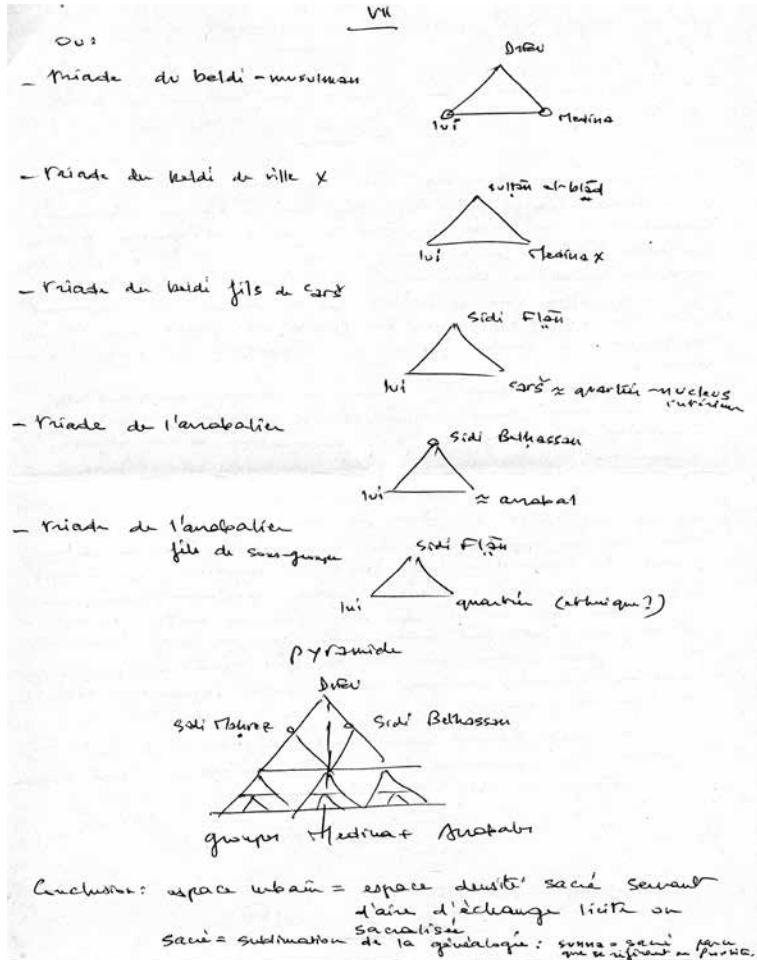 VII
Ou :
Dieu
- Triade du beldi-musulman
lui Medina
- Triade du beldi de ville X
sultān el-blād
lui Medina x
- Triade du beldi fils de çarš
Sidi Flān
lui çarš ≈ quartier - nucleus
intérieur
- Triade de l'arrabalien
Sidi Belhassan
lui ≈ arrabal
- Triade de l'arrabalien
fils de sous-groupe
Sidi Flān
lui quartier (ethnique?)
pyramide
Dieu
Sidi Mahrez Sidi Belhassan
groupes Medina + Arrabals
Conclusion: espace urbain = espace densité sacré servant
d'aire d'échange licite ou
sacralisée
sacré = sublimation de la généalogie : sunna = sacré parce
que se référant au